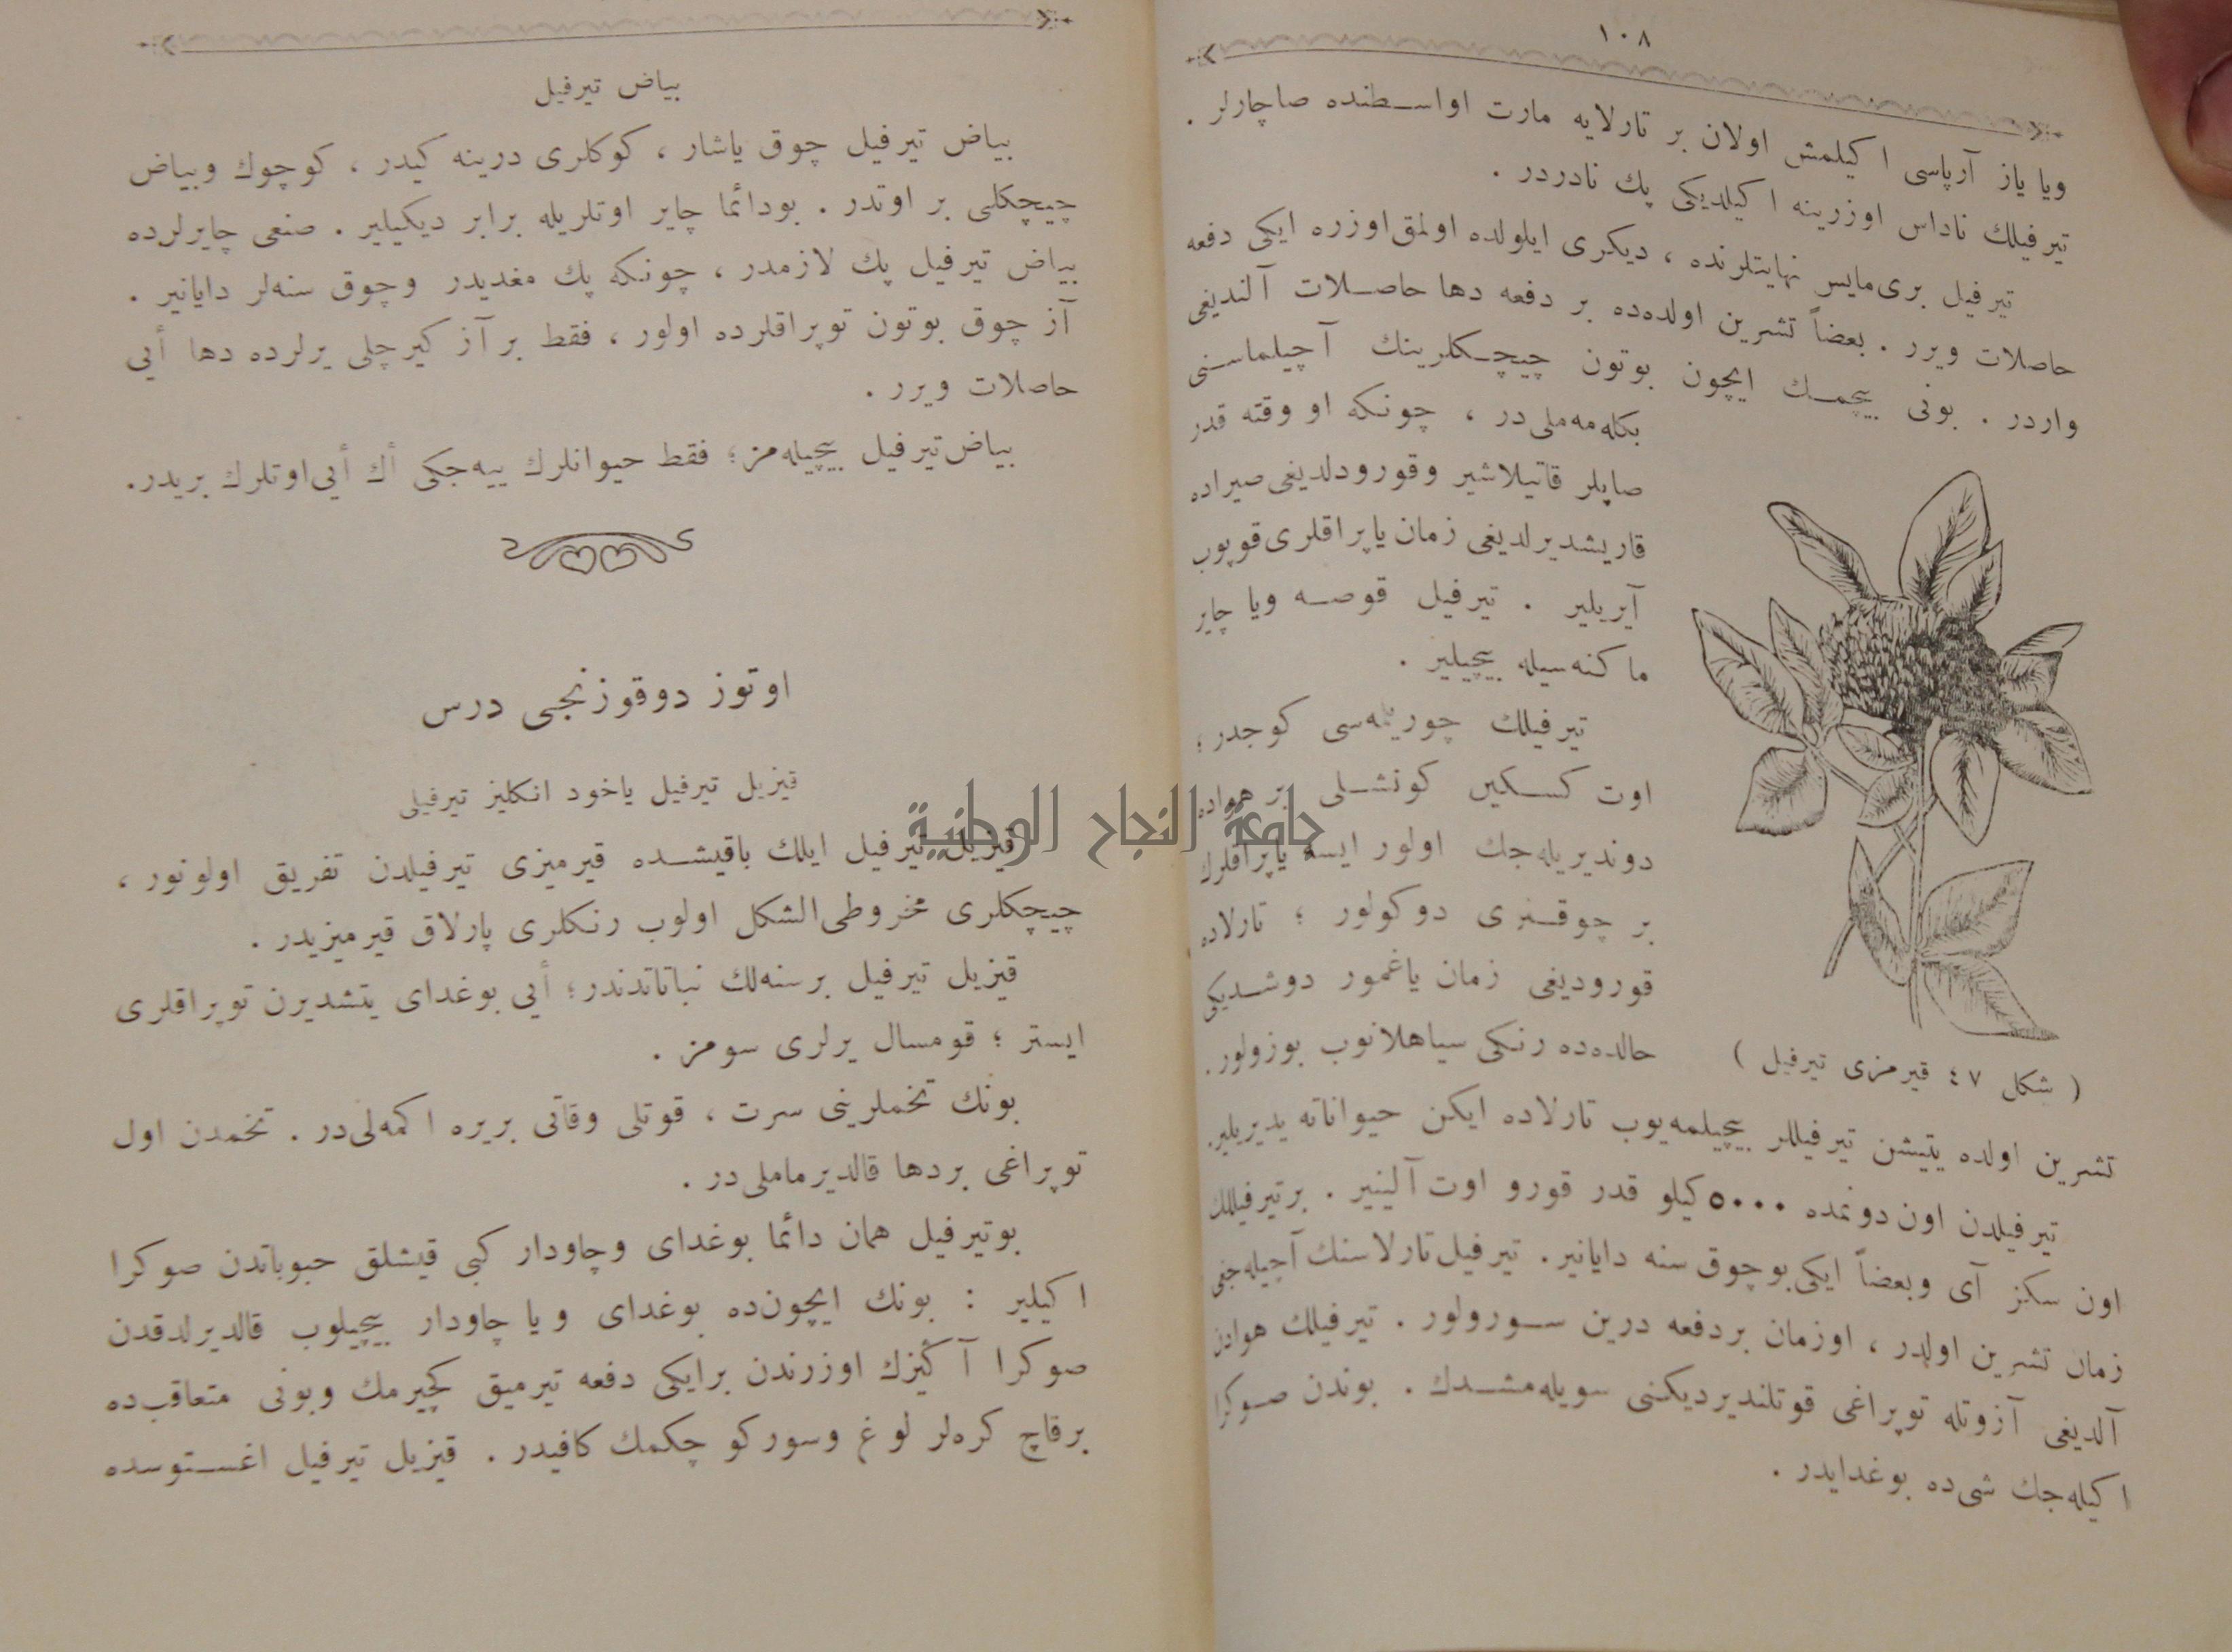 ١٠٨
ویا یاز آرپاسی اکیلمش اولان بر تارلایه مارت اواسطنده صاچارلر .
تیرفیلك ناداس اوزرینه اکیلدیکی پك نادردر .
تیرفیل بری‌مایس نهایتلرنده ، دیکری ایلولده اولمق‌اوزره ایکی دفعه
حاصلات ویرر . بعضاً تشرین اولده‌ده بر دفعه دها حاصلات آلندیغی
واردر . بونی بیچمك ایچون بوتون چیچکلرینك آچیلماسنی
بکله‌مه‌ملی‌در ، چونکه او وقته قدر
صاپلر قاتیلاشیر وقورودلدیغی صیراده
قاریشدیرلدیغی زمان یاپراقلری قوپوب
آیریلیر . تیرفیل قوصه ویا چایر
ماکنه‌سیله بیچیلیر .
تیرفیلك چوریلمه‌سی کوجدر ؛
اوت کسکین کونشلی بر هواده
دوندیریله‌جك اولور ایسه یاپراقلرك
بر چوقنری دوکولور ؛ تارلاده
قورودیغی زمان یاغمور دوشدیکی
حالده‌ده رنکی سیاهلانوب بوزولور.
( شکل ٤٧ قیرمزی تیرفیل )
تشرین اولده یتیشن تیرفیللر بیچیلمه‌یوب تارلاده ایکن حیواناته یدیریلیر.
تیرفیلدن اون دونمده ٥٠٠٠ کیلو قدر قورو اوت آلینیر . برتیرفیللك
اون سکز آی وبعضاً ایکی بوچوق سنه دایانیر. تیرفیل تارلاسنك آچیله‌جغی
زمان تشرین اولدر ، اوزمان بردفعه درین سورولور . تیرفیلك هوادن
آلدیغی آزوتله توپراغی قوتلندیردیکنی سویله‌مشدك . بوندن صوکرا
اکیله‌جك شی‌ده بوغدایدر .
بیاض تیرفیل
بیاض تیرفیل چوق یاشار ، کوکلری درینه کیدر ، کوچوك وبیاض
چیچکلی بر اوتدر . بودائما چایر اوتلریله برابر دیکیلیر . صنعی چایرلرده
بیاض تیرفیل پك لازمدر ، چونکه پك مغدیدر وچوق سنه‌لر دایانیر .
آز چوق بوتون توپراقلرده اولور ، فقط بر آز کیرچلی یرلرده دها أیی
حاصلات ویرر .
بیاض تیرفیل بیچیله‌مز ؛ فقط حیوانلرك ییه‌جکی أك أیی‌اوتلرك بریدر.
اوتوز دوقوزنجی درس
قیزیل تیرفیل یاخود انکلیز تیرفیلی
قیزیل تیرفیل ایلك باقیشده قیرمیزی تیرفیلدن تفریق اولونور ،
چیچکلری مخروطی‌الشکل اولوب رنکلری پارلاق قیرمیزیدر .
قیزیل تیرفیل برسنه‌لك نباتاتدندر ؛ أیی بوغدای یتشدیرن توپراقلری
ایستر ؛ قومسال یرلری سومز .
بونك تخملرینی سرت ، قوتلی وقاتی بریره اکمه‌لی‌در . تخمدن اول
توپراغی بردها قالدیرماملی‌در .
بوتیرفیل همان دائما بوغدای وچاودار کبی قیشلق حبوباتدن صوکرا
اکیلیر : بونك ایچون‌ده بوغدای ویا چاودار بیچیلوب قالدیرلدقدن
صوکرا آ کیزك اوزرندن برایکی دفعه تیرمیق کچیرمك وبونی متعاقب‌ده
برقاچ کره‌لر لوغ وسورکو چکمك کافیدر . قیزیل تیرفیل اغستوسده
جامعة النجاح الوطنية